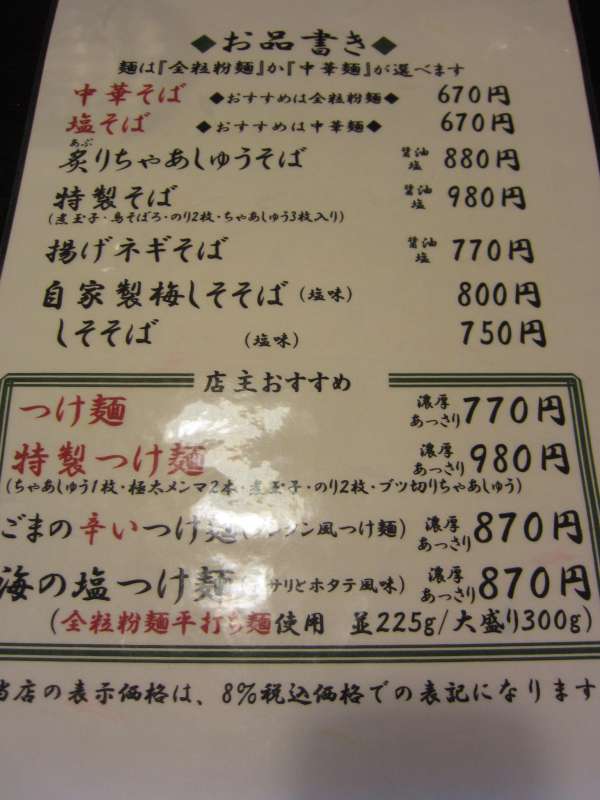 ◆お品書き◆
麺は『全粒粉麺』か『中華麺』が選べます
中華そば ◆おすすめは全粒粉麺◆ 670円
塩そば ◆おすすめは中華麺◆ 670円
あぶ
炙りちゃあしゅうそば 醤油 塩 880円
特製そば 醤油 塩 980円
(煮玉子・鳥そぼろ・のり2枚・ちゃあしゅう3枚入り)
揚げネギそば 醤油 塩 770円
自家製梅しそそば(塩味) 800円
しそそば (塩味) 750円
店主おすすめ
つけ麺 濃厚 あっさり 770円
特製つけ麺 濃厚 あっさり 980円
(ちゃあしゅう1枚・極太メンマ2本・煮玉子・のり2枚・ブツ切りちゃあしゅう)
ごまの辛いつけ麺(ン風つけ麺) 濃厚 あっさり 870円
海の塩つけ麺(サリとホタテ風味) 濃厚 あっさり 870円
(全粒粉麺平打ち麺使用 並225g/大盛り300g)
当店の表示価格は、8%税込価格での表記になります